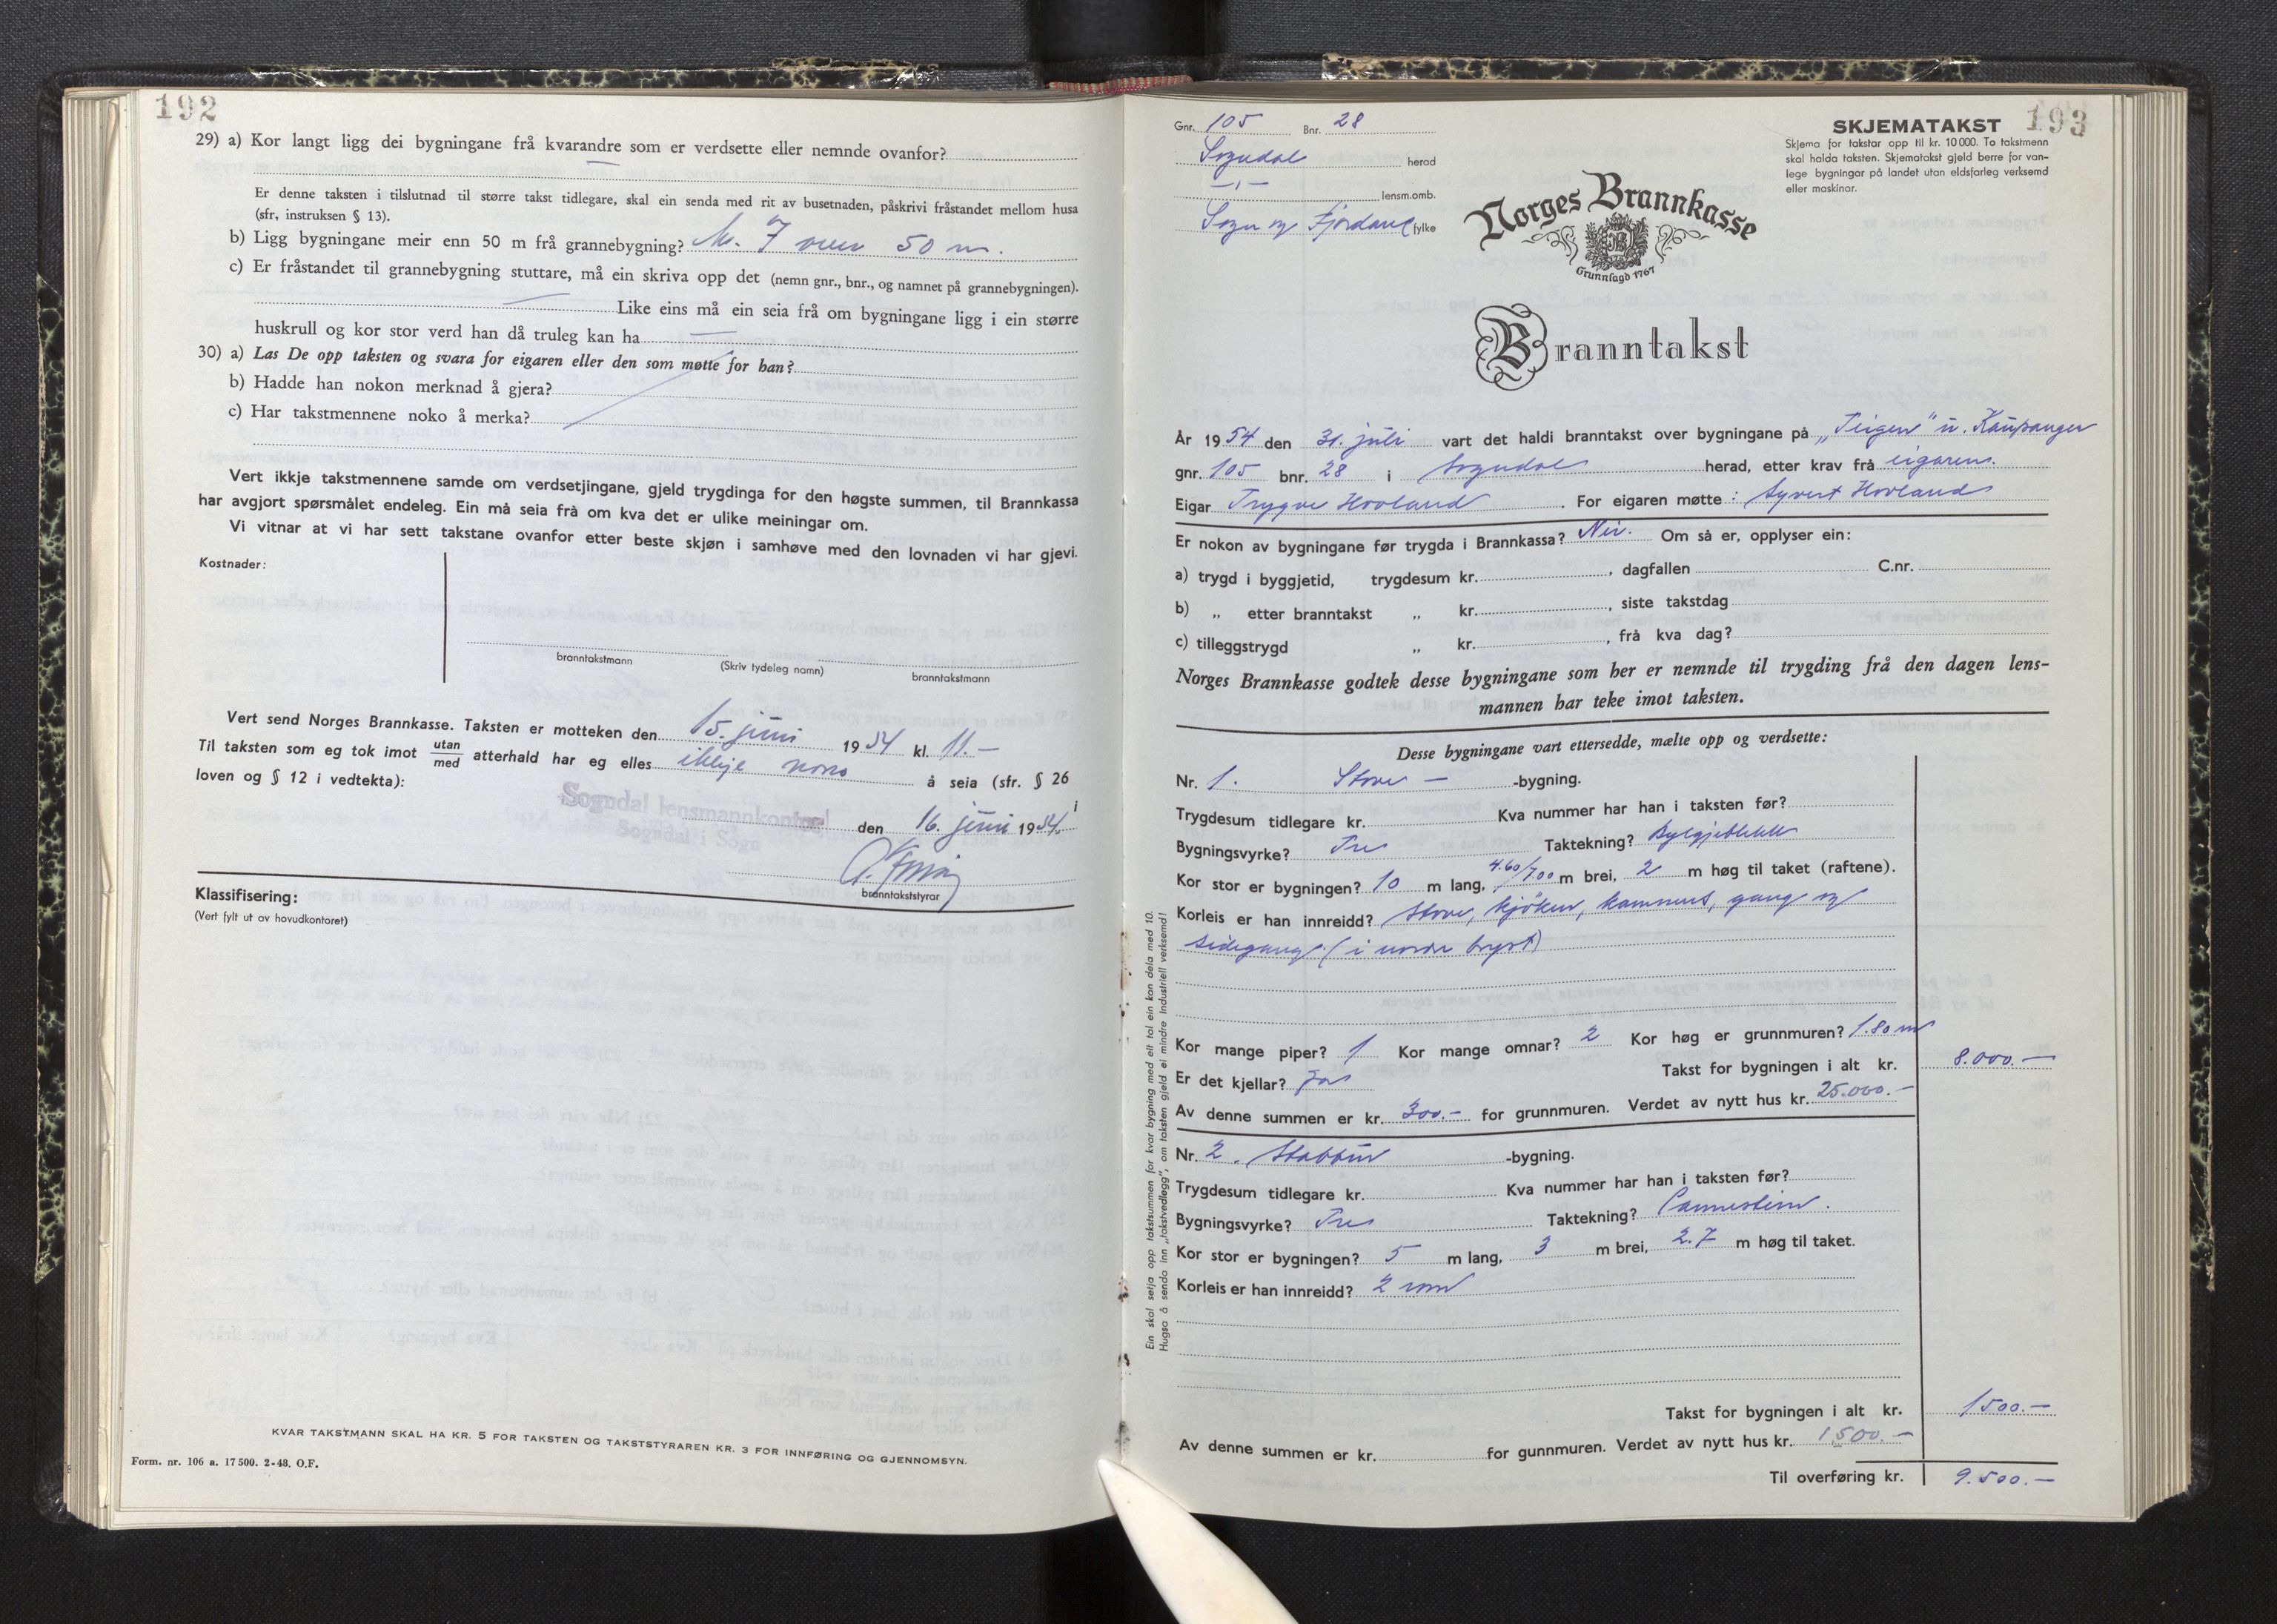 192
29) a) Kor langt ligg dei bygningane frå kvarandre som er verdsette eller nemnde ovanfor?
Er denne taksten i tilslutnad til større takst tidlegare, skal ein senda med rit av busetnaden, påskrivi fråstandet mellom husa
(sfr, instruksen § 13).
b) Ligg bygningane meir enn 50 m frå grannebygning? Nr. 7 over 50 m.
c) Er fråstandet til grannebygning stuttare, må ein skriva opp det (nemn gnr., bnr., og namnet på grannebygningen).
Like eins må ein seia frå om bygningane ligg i ein større
huskrull og kor stor verd han då truleg kan ha
30) a) Las De opp taksten og svara for eigaren eller den som møtte for han?
b) Hadde han nokon merknad å gjera?
c) Har takstmennene noko å merka?
Vert ikkje takstmennene samde om verdsetjingane, gjeld trygdinga for den høgste summen, til Brannkassa
har avgjort spørsmålet endeleg. Ein må seia frå om kva det er ulike meiningar om.
Vi vitnar at vi har sett takstane ovanfor etter beste skjøn i samhøve med den lovnaden vi har gjevi.
Kostnader:
branntakstmann (Skriv tydeleg namn) branntakstmann
Vert send Norges Brannkasse. Taksten er motteken den 15. juni 1954 kl. 11.-
Til taksten som eg tok imot utan/med atterhald har eg elles ikkje noko å seia (sfr. § 26
loven og § 12 i vedtekta):
i
Sogndal lensmannkontor den 16. juni 1954.
Sogndal i Sogn
branntakststyrar
Klassifisering:
(Vert fylt ut av hovudkontoret)
KVAR TAKSTMANN SKAL HA KR. 5 FOR TAKSTEN OG TAKSTSTYRAREN KR. 3 FOR INNFØRING OG GJENNOMSYN.
Form. nr. 106 a. 17 500. 2-48. O.F.
193
Gnr. 105 Bnr. 28
Sogndal herad
-"- lensm.omb.
Sogn og Fjordane fylke
SKJEMATAKST
Skjema for takstar opp til kr. 10 000. To takstmenn
skal halda taksten. Skjematakst gjeld berre for van-
lege bygningar på landet utan eldsfarleg verksemd
eller maskinar.
Norges Brannkasse
Grunnlagd 1767
Branntakst
År 1954 den 31. juli vart det haldi branntakst over bygningane på „Teigen" u. Kaupanger
gnr. 105 bnr. 28 i Sogndal herad, etter krav frå eigaren.
Eigar Trygve Hovland. For eigaren møtte: Syvert Hovland
Er nokon av bygningane før trygda i Brannkassa? Nei. Om så er, opplyser ein:
a) trygd i byggjetid, trygdesum kr. , dagfallen C.nr.
b) „ etter branntakst „ kr. , siste takstdag
c) tilleggstrygd „ kr. , frå kva dag?
Norges Brannkasse godtek desse bygningane som her er nemnde til trygding frå den dagen lens-
mannen har teke imot taksten.
Desse bygningane vart ettersedde, mælte opp og verdsette:
Nr. 1. Stove - -bygning.
Trygdesum tidlegare kr. Kva nummer har han i taksten før?
Bygningsvyrke? Tre Taktekning? Bylgjeblekk
Kor stor er bygningen? 10 m lang, 4.60/7.00 m brei, 2 m høg til taket (raftene).
Korleis er han innreidd? Stove, kjöken, kammers, gang og
sidegang (i nordre bryst)
Kor mange piper? 1 Kor mange omnar? 2 Kor høg er grunnmuren? 1.80 m
Er det kjellar? Ja Takst for bygningen i alt kr. 8.000.-
Av denne summen er kr. 300.- for grunnmuren. Verdet av nytt hus kr. 25.000.-
Nr. 2. Stabbur -bygning.
Trygdesum tidlegare kr. Kva nummer har han i taksten før?
Bygningsvyrke? Tre Taktekning? Pannestein.
Kor stor er bygningen? 5 m lang, 3 m brei, 2.7 m høg til taket.
Korleis er han innreidd? 2 rom
Takst for bygningen i alt kr. 1500.-
Av denne summen er kr. for gunnmuren. Verdet av nytt hus kr. 1500.-
Til overføring kr. 9.500.-
Ein skal setja opp takstsummen for kvar bygning med eit tal ein kan dela med 10.
Hugsa å senda inn „takstvedlegg", om taksten gjeld ei mindre industriell verksemd!